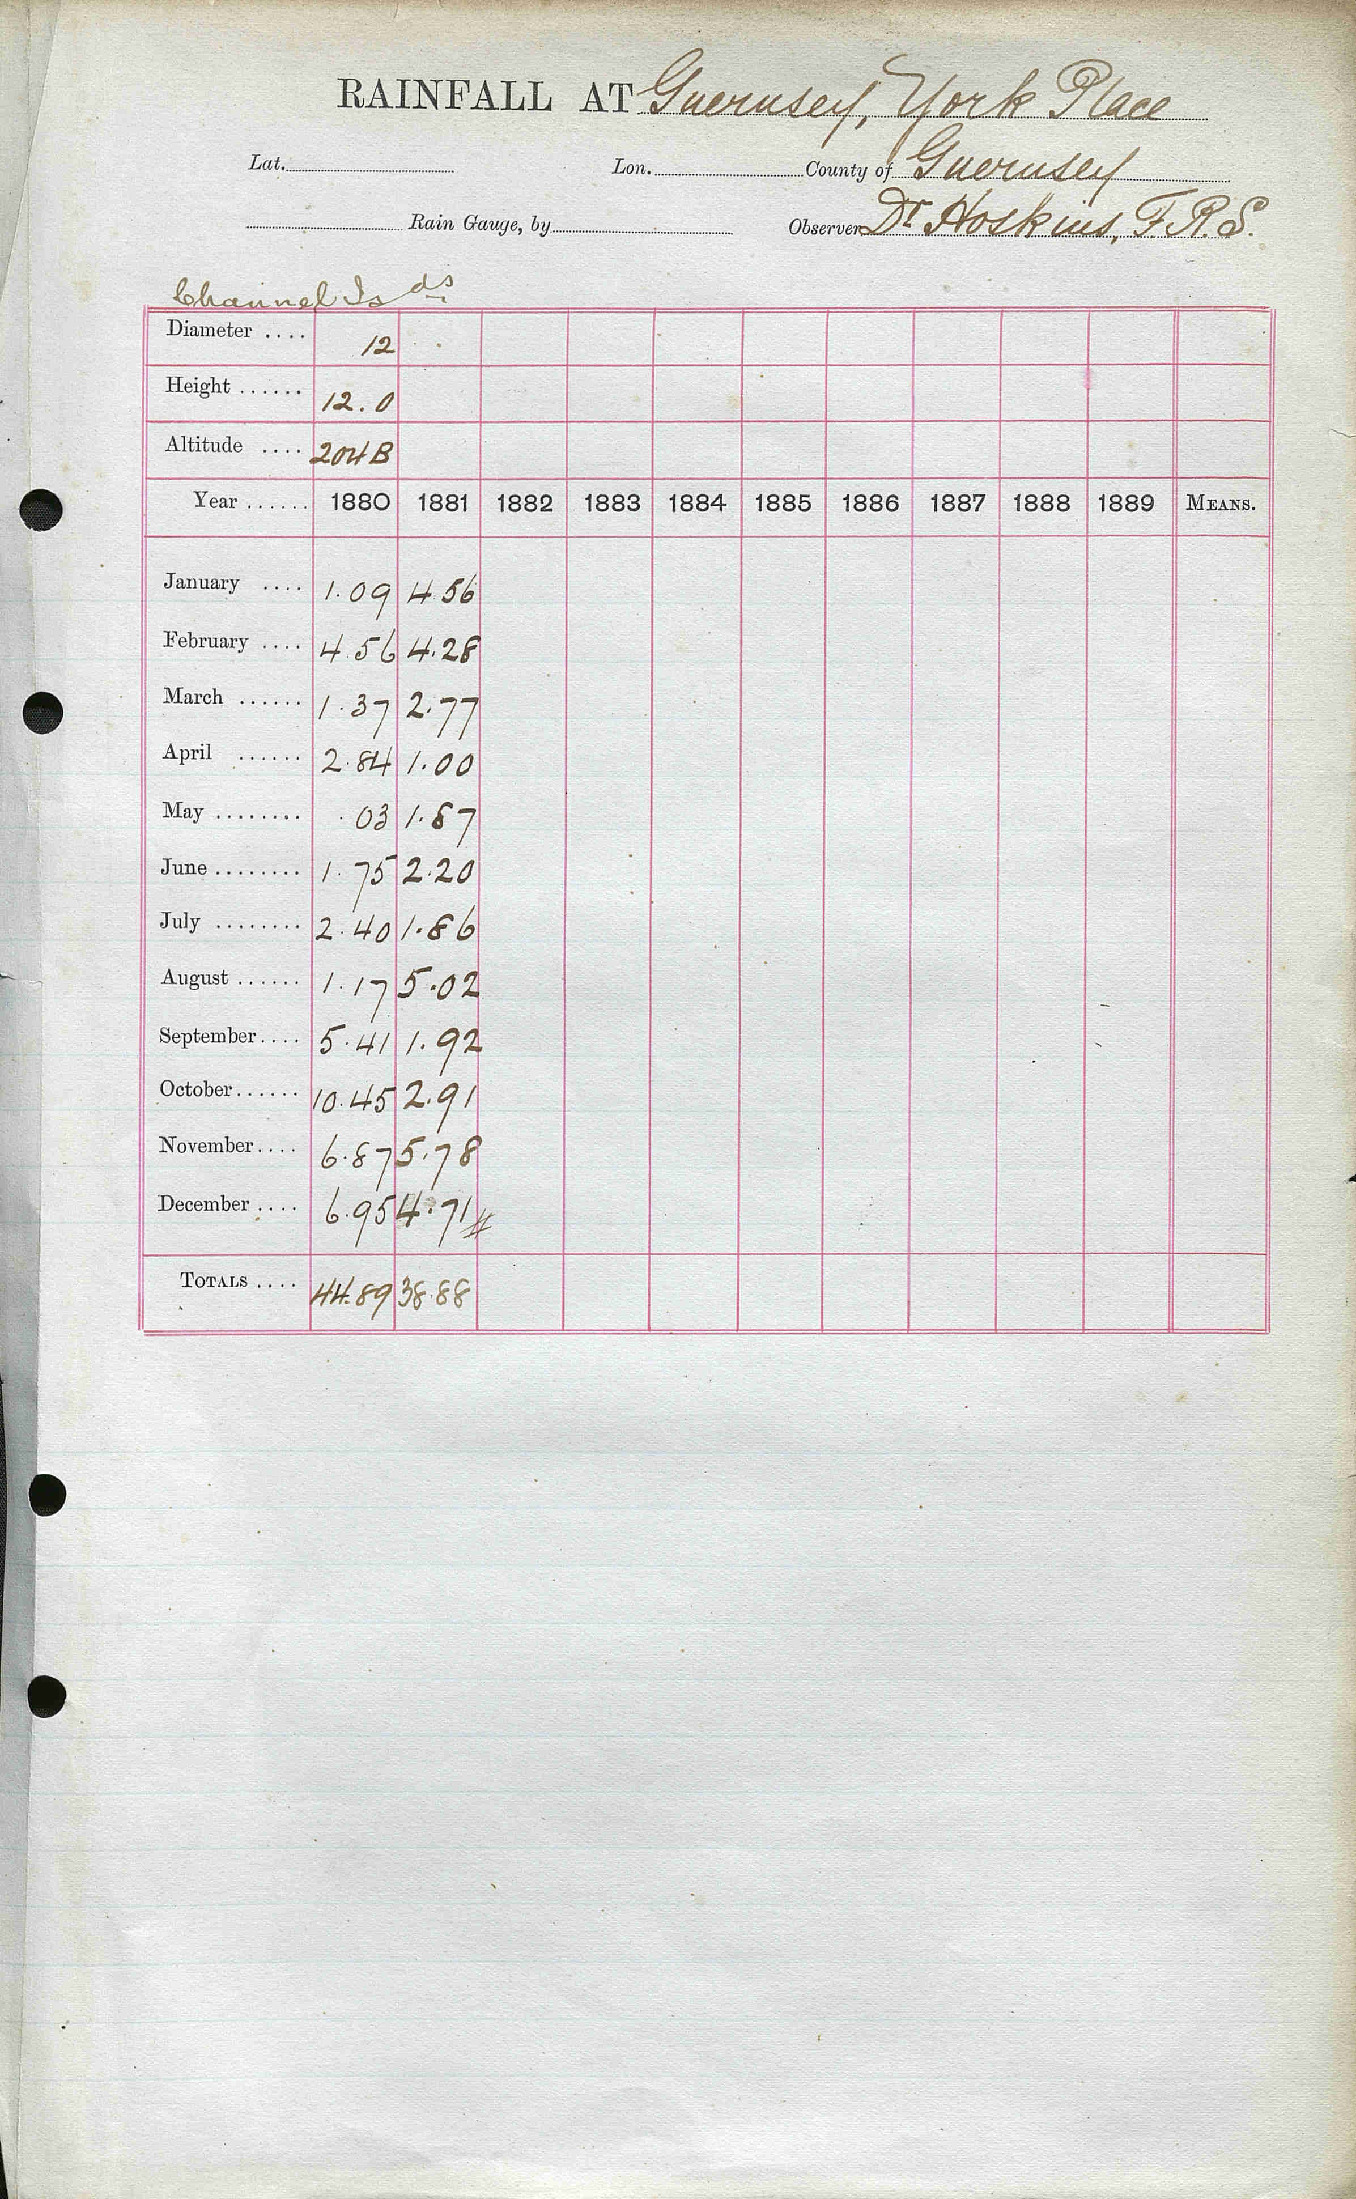 RAINFALL AT Guernsey, York Place
Lat. Lon. County of Guernsey
Rain Gauge, by Observer Dr Hoskins, F.R.S.
Channel Isds
Diameter .... 12
Height ...... 12.0
Altitude .... 204B
Year ...... 1880 1881 1882 1883 1884 1885 1886 1887 1888 1889 MEANS.
January .... 1.09 4.56
February .... 4.56 4.28
March ...... 1.37 2.77
April ...... 2.84 1.00
May ........ .03 1.87
June ........ 1.75 2.20
July ........ 2.40 1.86
August ...... 1.17 5.02
September .... 5.41 1.92
October ...... 10.45 2.91
November .... 6.87 5.78
December .... 6.95 4.71 #
TOTALS .... 44.89 38.88